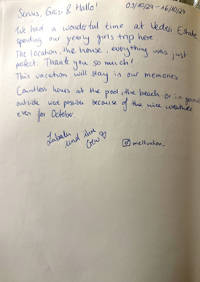 Servus, Grüzi & Hallo!
03/10/24 - 16/10/24
We had a wonderful time at
spending our yearly girls trip here
The location, the house, everything was just
perfect. Thank you so much!
This vacation will stay in our memories
Countless hours at the pool, the beach or in
outside was possible because of the nice weather
even for October
und